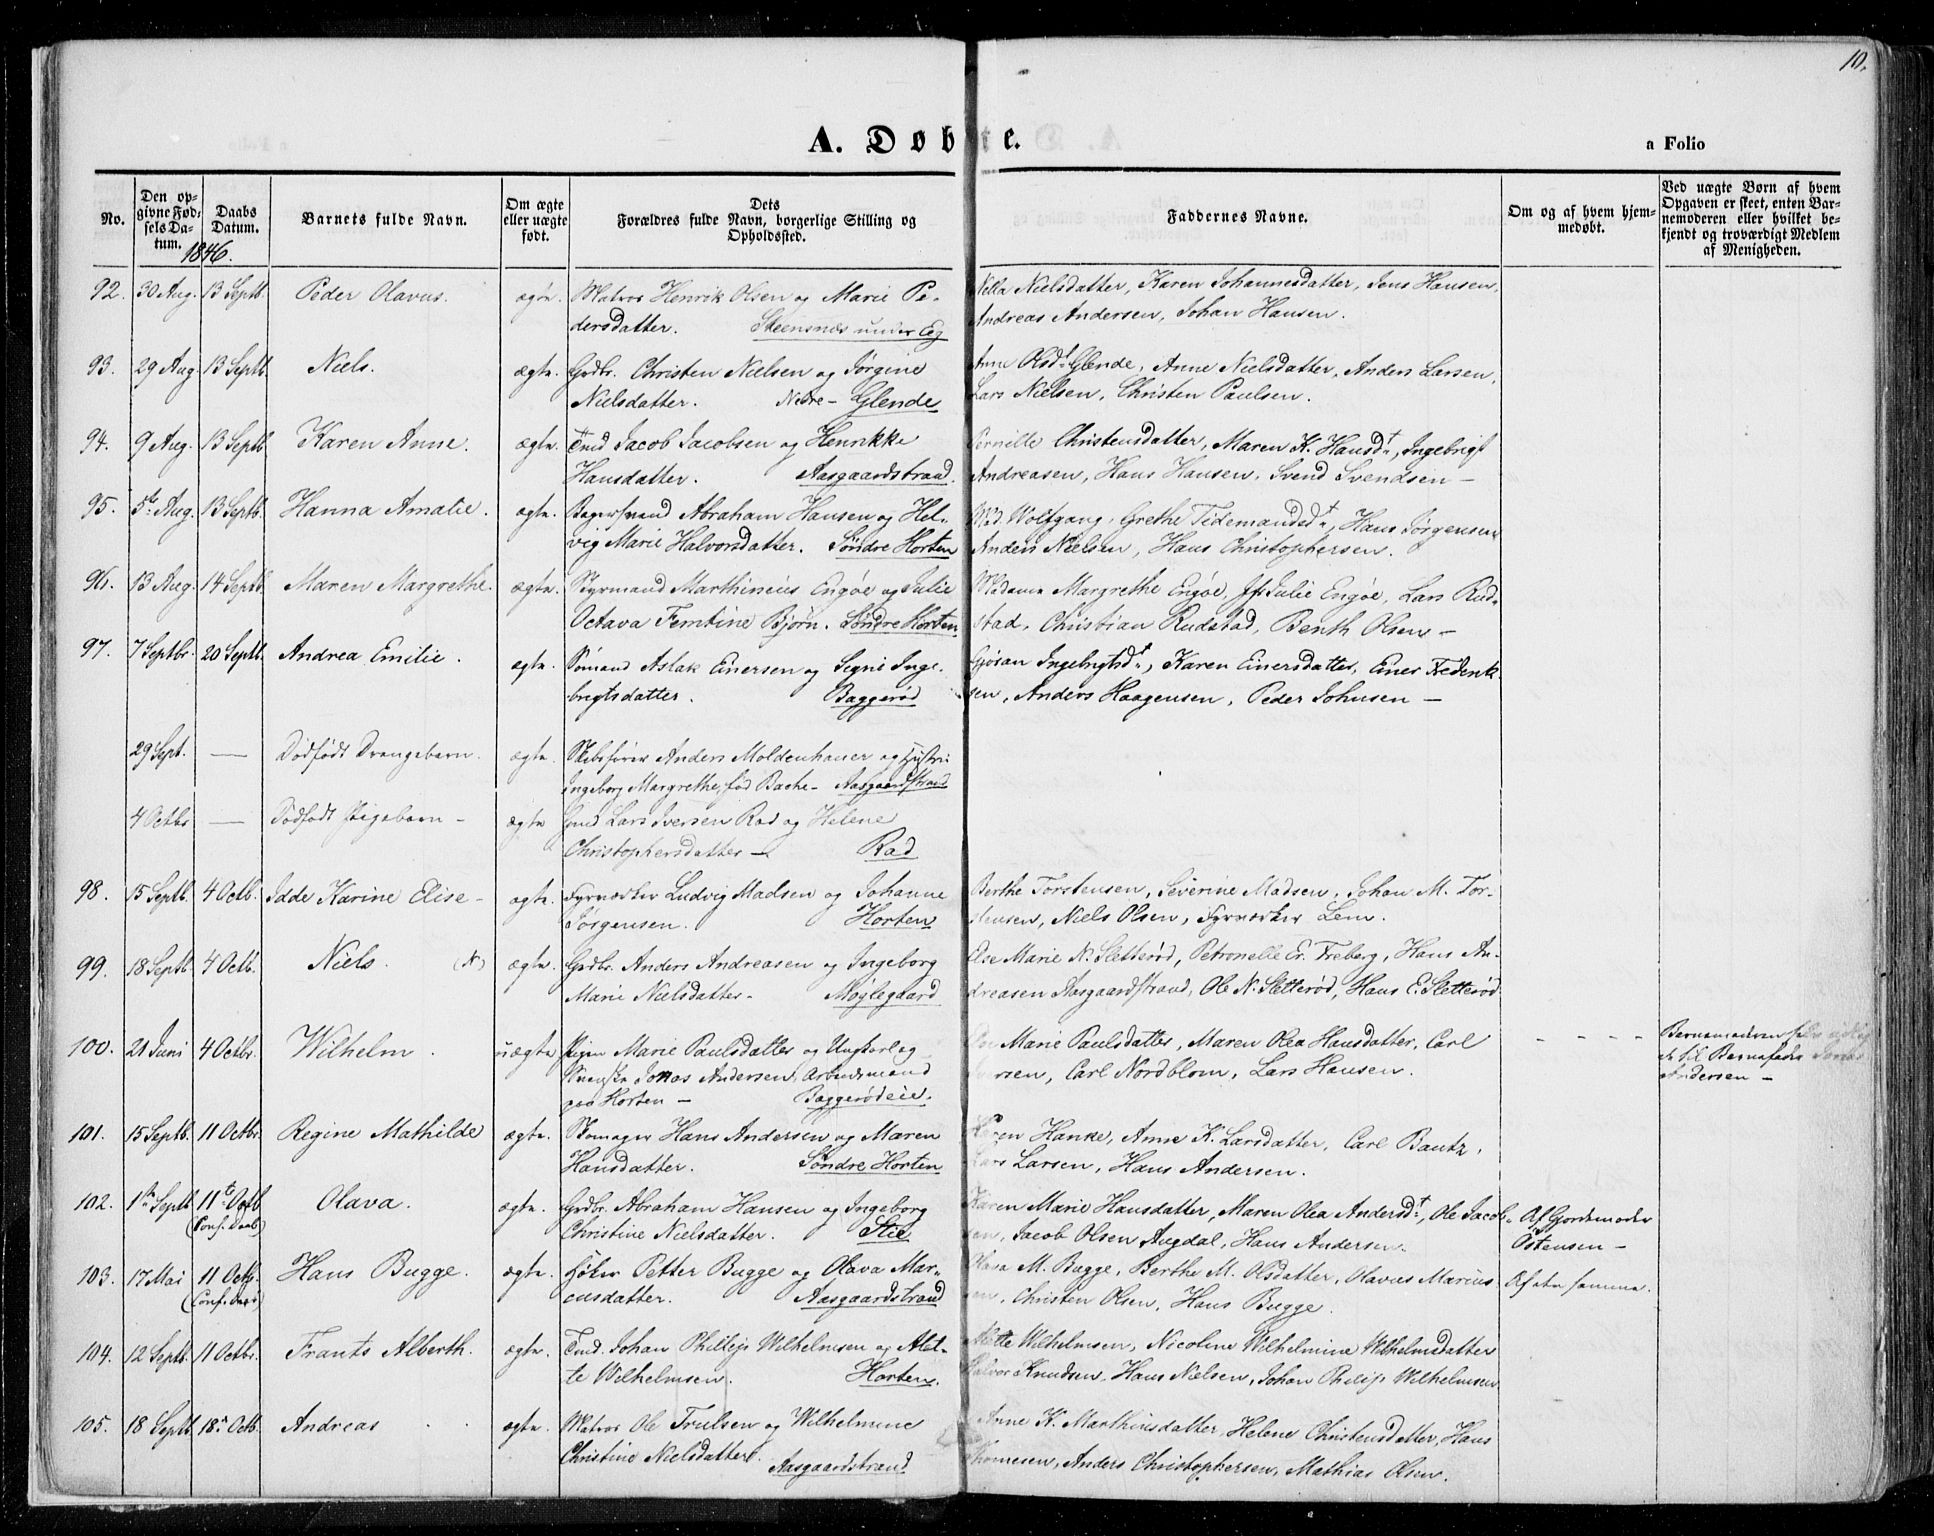 10.
A. Døbte.
a Folio
No.
Den op-
givne Fød-
sels Da-
tum.
Daabs
Datum.
1846.
Barnets fulde Navn.
Om ægte
eller uægte
født.
Dets
Forældres fulde Navn, borgerlige Stilling og
Opholdssted.
Faddernes Navne.
Om og af hvem hjem-
medøbt.
Ved uægte Børn af hvem
Opgaven er skeet, enten Bar-
nemoderen eller hvilket be-
kjendt og troværdigt Medlem
af Menigheden.
92. 30 Aug. 13 Septb. Peder Olavus. ægte. Matros Henrik Olsen og Marie Pe- Nella Nielsdatter, Karen Johannesdatter, Jens Hansen,
dersdatter. Steensnæs under Eeg Andreas Andersen, Johan Hansen.
93. 29 Aug. 13 Septb. Niels. ægte. Grdbr. Christen Nielsen og Jørgine Anne Olsdt. Glende, Anne Nielsdatter, Anders Larsen,
Nielsdatter. Nedre- Glende Lars Nielsen, Christen Paulsen.
94. 9 Aug. 13 Septb Karen Anne. ægte. Tmd Jacob Jacobsen og Henrikke Pernille Christensdatter, Maren K. Hansdt., Ingebrigt
Hansdatter. Aasgaardstrand. Andreasen, Hans Hansen, Svend Svendsen –
95. 5te Aug. 13 Septb. Hanna Amalie. ægte. Bagersvend Abraham Hansen og Hel- Mad. Wolfgang, Grethe Tidemandsdt., Hans Jørgensen
vig Marie Halvorsdatter. Søndre Horten Anders Nielsen, Hans Christophersen.
96. 13 Aug. 14 Septb. Maren Margrethe. ægte. Styrmand Marthinius Engøe og Julie Madame Margrethe Engøe, Jfr Julie Engøe, Lars Rud-
Octava Femtine Bjørn. Søndre Horten. stad, Christian Rudstad, Benth Olsen –
97. 7 Septbr. 20 Septb. Andrea Emilie. ægte. Sømand Aslak Einersen og Segni Inge- Gjøran Ingebrigtsdt., Karen Einersdatter, Einer Frederik-
brigtsdatter. Baggerød sen, Anders Haagensen, Peder Johnsen –
29 Sept. — Dødfødt Drengebarn. ægte. Skibsfører Anders Moldenhauer og Hustru
Ingeborg Margrethe, fød Bache – Aasgaardstrand
4 Octbr — Dødfødt Pigebarn – ægte Gmd Lars Iversen Rad og Helene
Christophersdatter – Rad
98. 15 Septb. 4 Octb. Idde Karine Elise – ægte. Fyrværker Ludvig Madsen og Johanne Berthe Torstensen, Severine Madsen, Johan M. Tor-
Jørgensen. Horten stensen, Niels Olsen, Fyrværker Lem.
99. 18 Septb 4 Octb. Niels. (N) ægte. Grdbr. Anders Andreasen og Ingeborg Else Marie N. Sletterød, Petronelle Er. Freberg, Hans An-
Marie Nielsdatter – Møylegaard dreasen Aasgaardstrand, Ole N. Sletterød, Hans E. Sletterød
100. 21 Juni 4 Octbr. Wilhelm. uægte Pigen Marie Paulsdatter og Ungkarl og Marie Paulsdatter, Maren Olea Hansdatter, Carl - - - - Barnemoderen
Svenske Jonas Andersen, Arbeidsmand Carl Nordblom, Lars Hansen. til Barnefader Jonas
paa Horten – Baggerødeie. Andersen –
101. 15 Septb. 11 Octbr. Regine Mathilde ægte. Skomager Hans Andersen og Maren Karen Hanke, Anne K. Larsdatter, Carl Bautz,
Hansdatter. Søndre Horten Lars Larsen, Hans Andersen.
102. 1ste Septb 11te Octb Olava. ægte. Grdbr. Abraham Hansen og Ingeborg Karen Marie Hansdatter, Maren Olea Andersdt., Ole Jacob- Af Gjordemoder
(Conf. Daab) Christine Nielsdatter. Stie sen, Jacob Olsen Augdal, Hans Andersen. Østensen –
103. 17 Mai 11 Octb. Hans Bugge. ægte. Høker Petter Bugge og Olava Mar- Olava M. Bugge, Berthe M. Olsdatter, Olavus Marius- Af den samme.
(Conf. Daab) cusdatter. Aasgaardstrand sen, Christen Olsen, Hans Bugge.
104. 12 Septb. 11 Octbr. Frants Alberth. ægte. Tmd. Johan Phillip Wilhelmsen og Met- Mette Wilhelmsen, Nicoline Wilhelmine Wilhelmsdatter
te Wilhelmsen. Horten. Halvor Knudsen, Hans Nielsen, Johan Philip Wilhelmsen
105. 18 Septb. 18. Octb. Andreas ægte. Matros Ole Trulsen og Wilhelmine Anne K. Marthinsdatter, Helene Christensdatter, Hans
Christine Nielsdatter. Aasgaardstrand Thomesen, Anders Christophersen, Mathias Olsen.